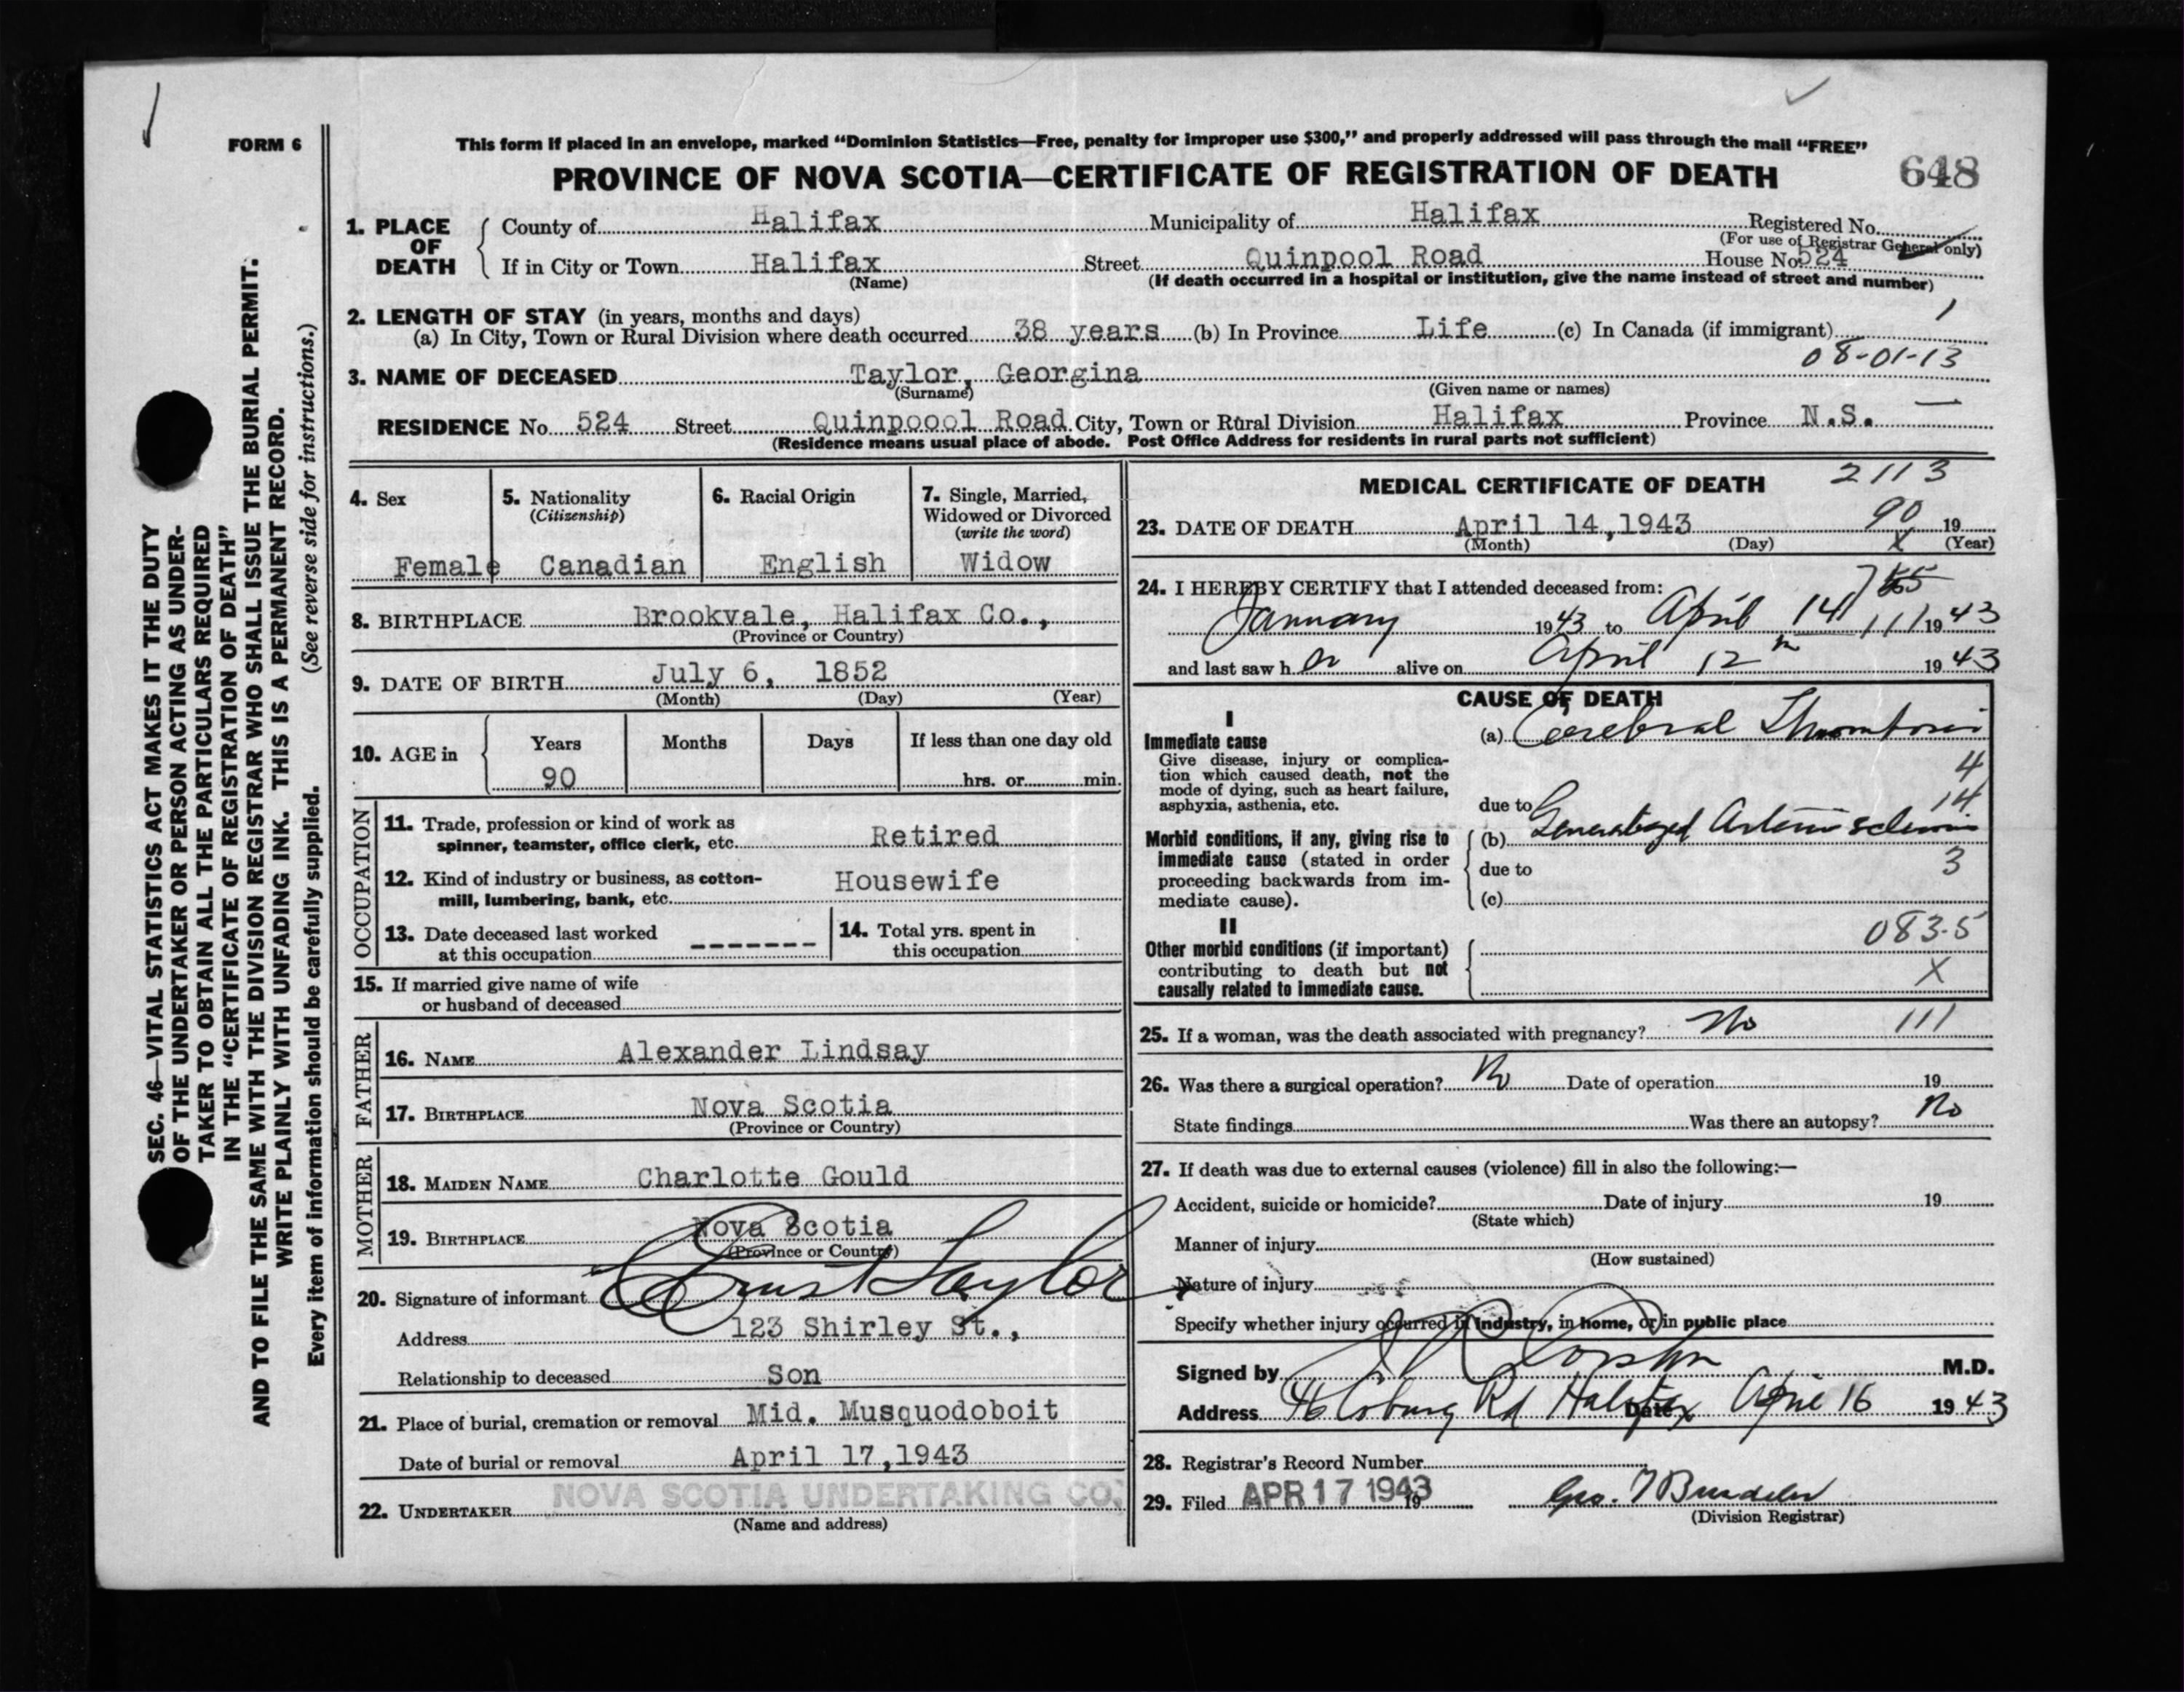 FORM 6
This form if placed in an envelope, marked “Dominion Statistics—Free, penalty for improper use $300,” and properly addressed will pass through the mail “FREE”
PROVINCE OF NOVA SCOTIA—CERTIFICATE OF REGISTRATION OF DEATH
648
SEC. 46—VITAL STATISTICS ACT MAKES IT THE DUTY
OF THE UNDERTAKER OR PERSON ACTING AS UNDER-
TAKER TO OBTAIN ALL THE PARTICULARS REQUIRED
IN THE “CERTIFICATE OF REGISTRATION OF DEATH”
AND TO FILE THE SAME WITH THE DIVISION REGISTRAR WHO SHALL ISSUE THE BURIAL PERMIT.
WRITE PLAINLY WITH UNFADING INK. THIS IS A PERMANENT RECORD.
Every item of information should be carefully supplied. (See reverse side for instructions.)
1. PLACE OF DEATH County of Halifax Municipality of Halifax Registered No.
(For use of Registrar General only)
If in City or Town Halifax Street Quinpool Road House No. 524
(Name) (If death occurred in a hospital or institution, give the name instead of street and number)
2. LENGTH OF STAY (in years, months and days)
(a) In City, Town or Rural Division where death occurred 38 years (b) In Province Life (c) In Canada (if immigrant)
08-01-13
3. NAME OF DECEASED Taylor, Georgina
(Surname) (Given name or names)
RESIDENCE No. 524 Street Quinpoool Road City, Town or Rural Division Halifax Province N.S.
(Residence means usual place of abode. Post Office Address for residents in rural parts not sufficient)
4. Sex
Female
5. Nationality
(Citizenship)
Canadian
6. Racial Origin
English
7. Single, Married,
Widowed or Divorced
(write the word)
Widow
8. BIRTHPLACE Brookvale, Halifax Co.,
(Province or Country)
9. DATE OF BIRTH July 6, 1852
(Month) (Day) (Year)
10. AGE in Years Months Days If less than one day old
90 hrs. or min.
OCCUPATION
11. Trade, profession or kind of work as
spinner, teamster, office clerk, etc. Retired
12. Kind of industry or business, as cotton-
mill, lumbering, bank, etc. Housewife
13. Date deceased last worked
at this occupation --------
14. Total yrs. spent in
this occupation
15. If married give name of wife
or husband of deceased
FATHER
16. NAME Alexander Lindsay
17. BIRTHPLACE Nova Scotia
(Province or Country)
MOTHER
18. MAIDEN NAME Charlotte Gould
19. BIRTHPLACE Nova Scotia
(Province or Country)
20. Signature of informant Ernst Taylor
Address 123 Shirley St.,
Relationship to deceased Son
21. Place of burial, cremation or removal Mid. Musquodoboit
Date of burial or removal April 17,1943
22. UNDERTAKER NOVA SCOTIA UNDERTAKING CO.
(Name and address)
MEDICAL CERTIFICATE OF DEATH
2113
23. DATE OF DEATH April 14,1943 90 19
(Month) (Day) X (Year)
24. I HEREBY CERTIFY that I attended deceased from:
January 1943 to April 14 111 1943
and last saw h er alive on April 12th 1943
CAUSE OF DEATH
I
Immediate cause
Give disease, injury or complica-
tion which caused death, not the
mode of dying, such as heart failure,
asphyxia, asthenia, etc.
(a) Cerebral Thrombosis
4
14
due to
Morbid conditions, if any, giving rise to
immediate cause (stated in order
proceeding backwards from im-
mediate cause).
(b) Generalized Arteriosclerosis
3
due to
(c)
II
083.5
Other morbid conditions (if important)
contributing to death but not
causally related to immediate cause.
X
25. If a woman, was the death associated with pregnancy? No 111
26. Was there a surgical operation? No Date of operation 19
State findings Was there an autopsy? No
27. If death was due to external causes (violence) fill in also the following:—
Accident, suicide or homicide? Date of injury 19
(State which)
Manner of injury
(How sustained)
Nature of injury
Specify whether injury occurred in industry, in home, or in public place
Signed by M.D.
Address 46 Coburg Rd Halifax Date April 16 1943
28. Registrar's Record Number
29. Filed APR 17 1943 19
(Division Registrar)